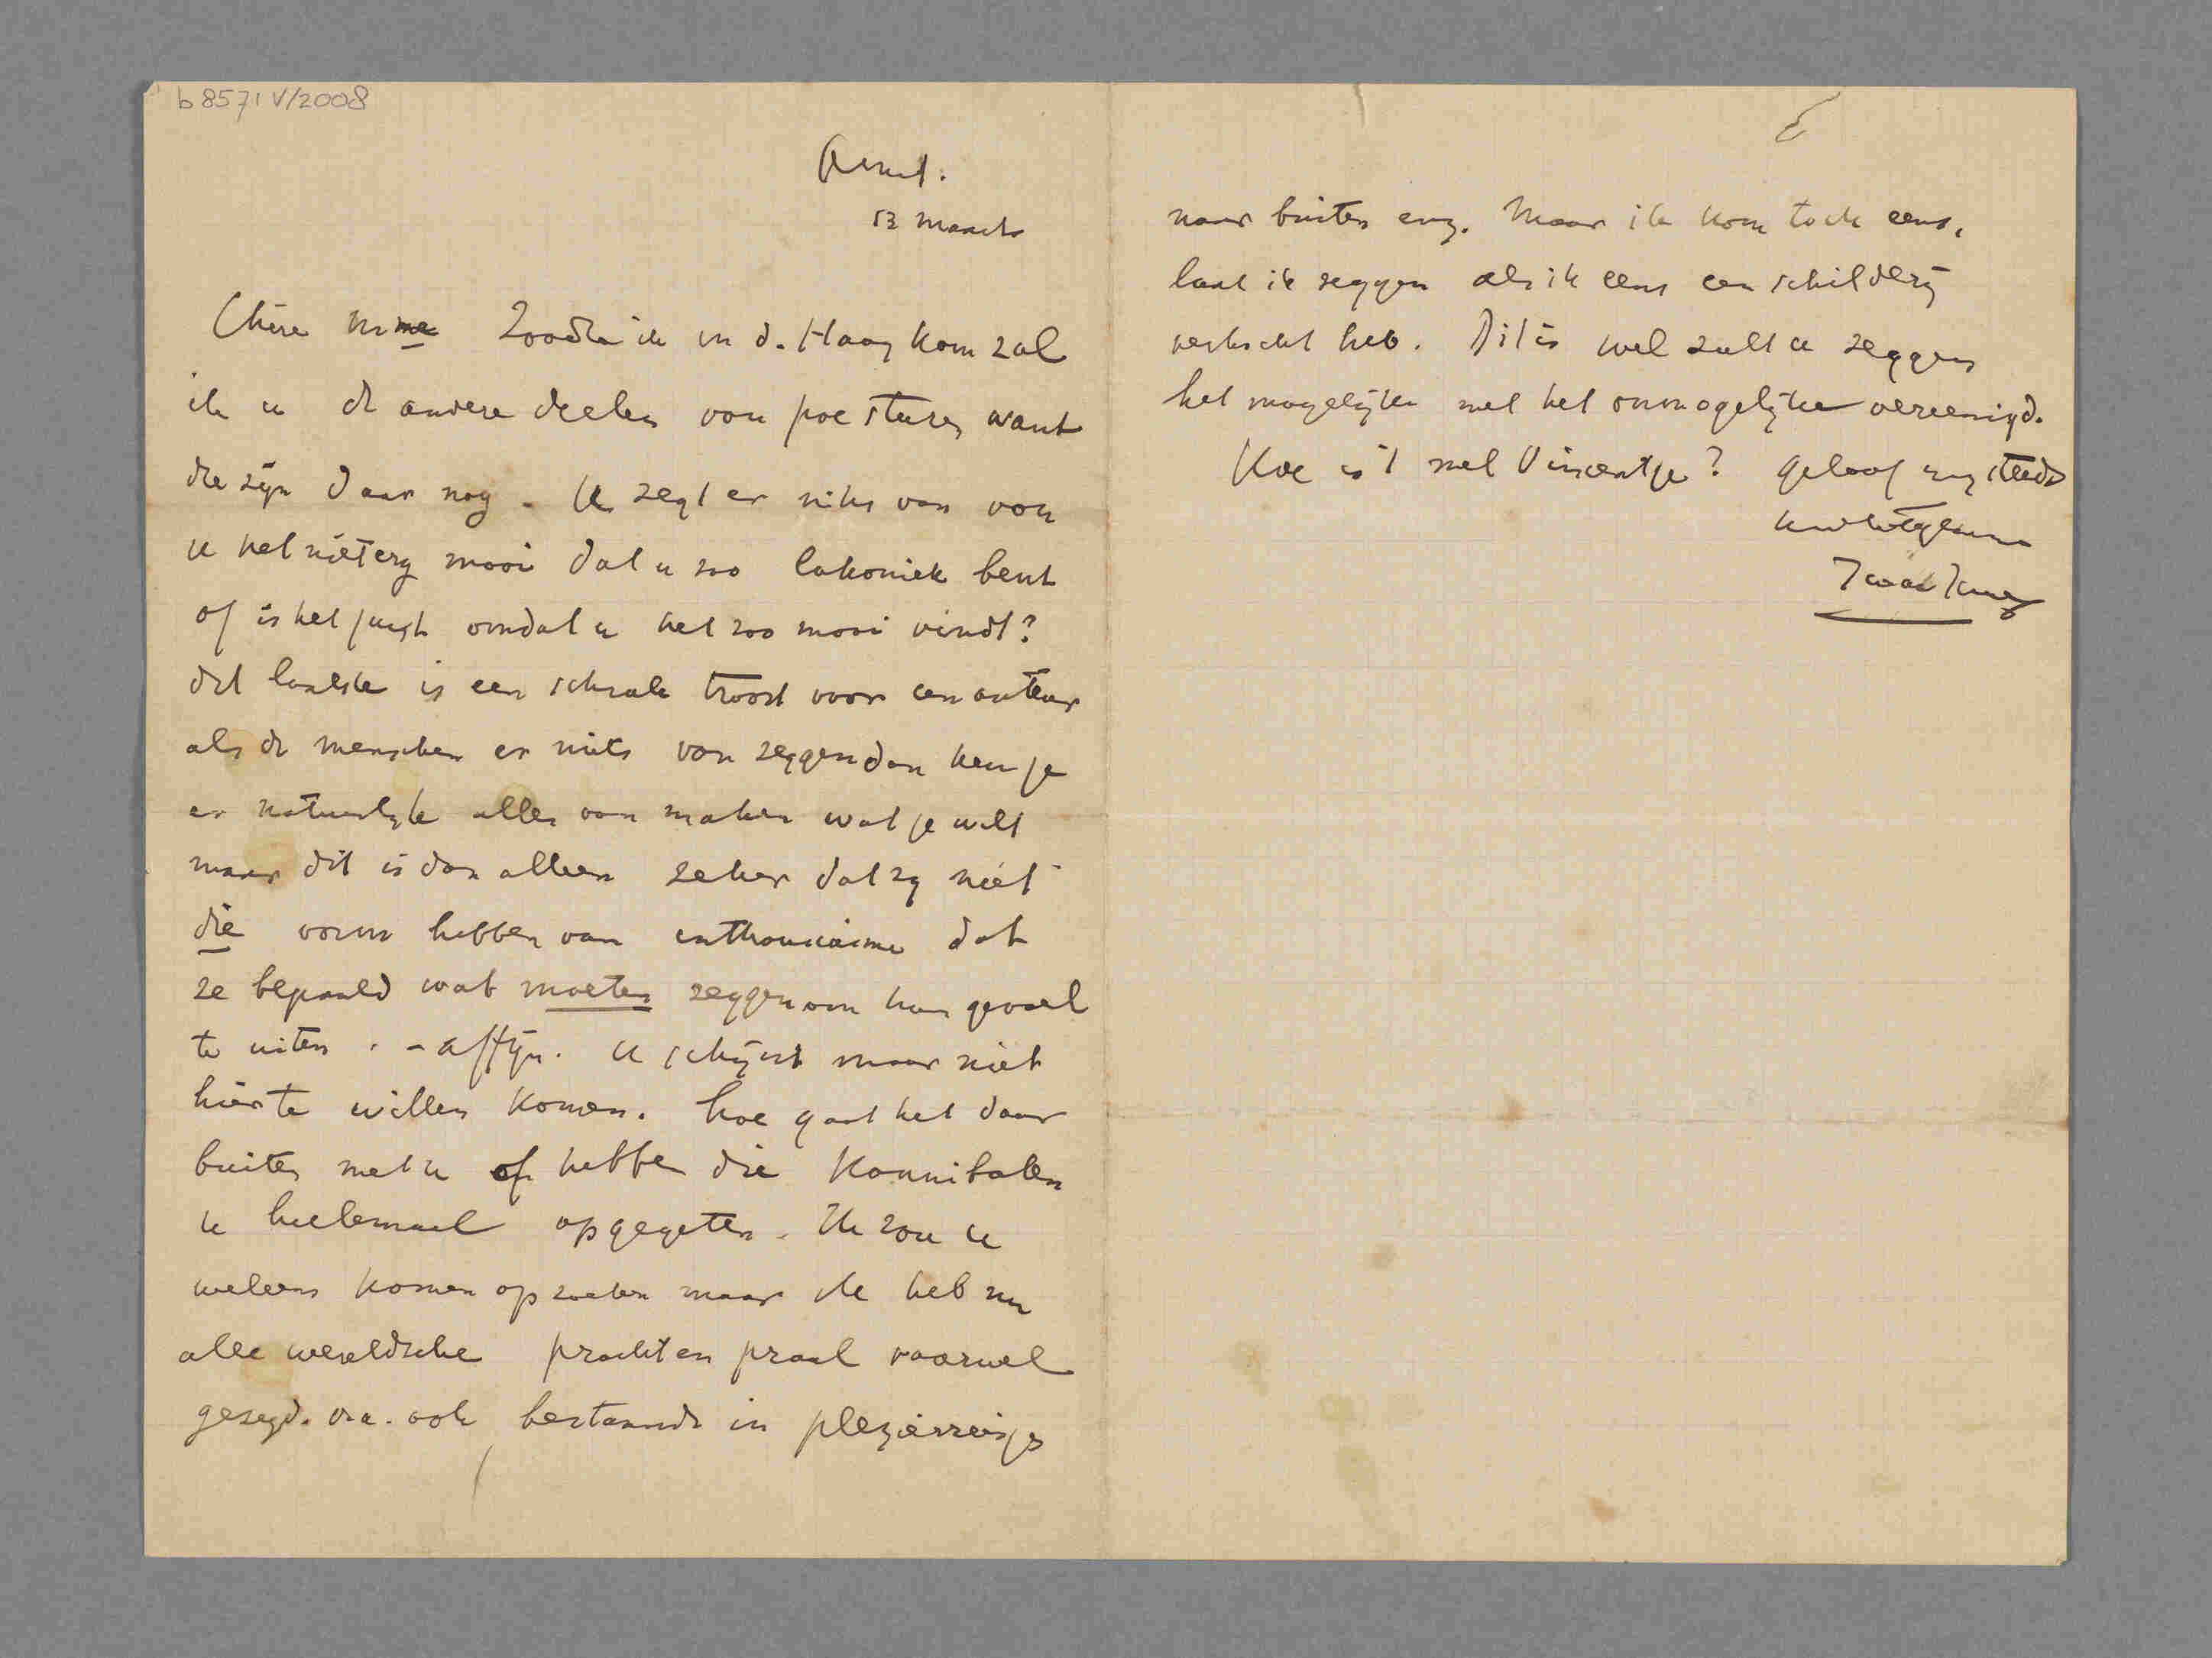 b 8571 V/2008
Amst.
13 maart
Chère Mme Zoodra ik in d. Haag kom zal
ik u de andere deelen van poe sturen want
die zijn daar nog. U zegt er niks van vou
u het niet erg mooi dat u zoo lakoniek bent
of is het juist omdat u het zoo mooi vindt?
dit laatste is een schrale troost voor een auteur
als de menschen er niets van zeggen dan ken je
er natuurlyk alles van maken wat je wilt
maar dit is dan alleen zeker dat zy niet
die vorm hebben van enthousiasme dat
ze bepaald wat moeten zeggen om hun gevoel
te uiten . - affijn. U schijnt maar niet
hier te willen komen. hoe gaat het daar
buiten met u of hebben die Kannibalen
u heelemaal opgegeten. Ik zou u
weleens komen opzoeken maar ik heb nu
alle wereldsche pracht en praal vaarwel
gezegd. o.a. ook bestaande in plezierreisjes
naar buiten enz. Maar ik kom toch eens,
laat ik zeggen als ik eens een schilderij
verkocht heb. Dit is wel zult u zeggen
het mogelijke met het onmogelijke vereenigd.
Hoe is 't met Vincentje? geloof mij steeds
Isaac Israels